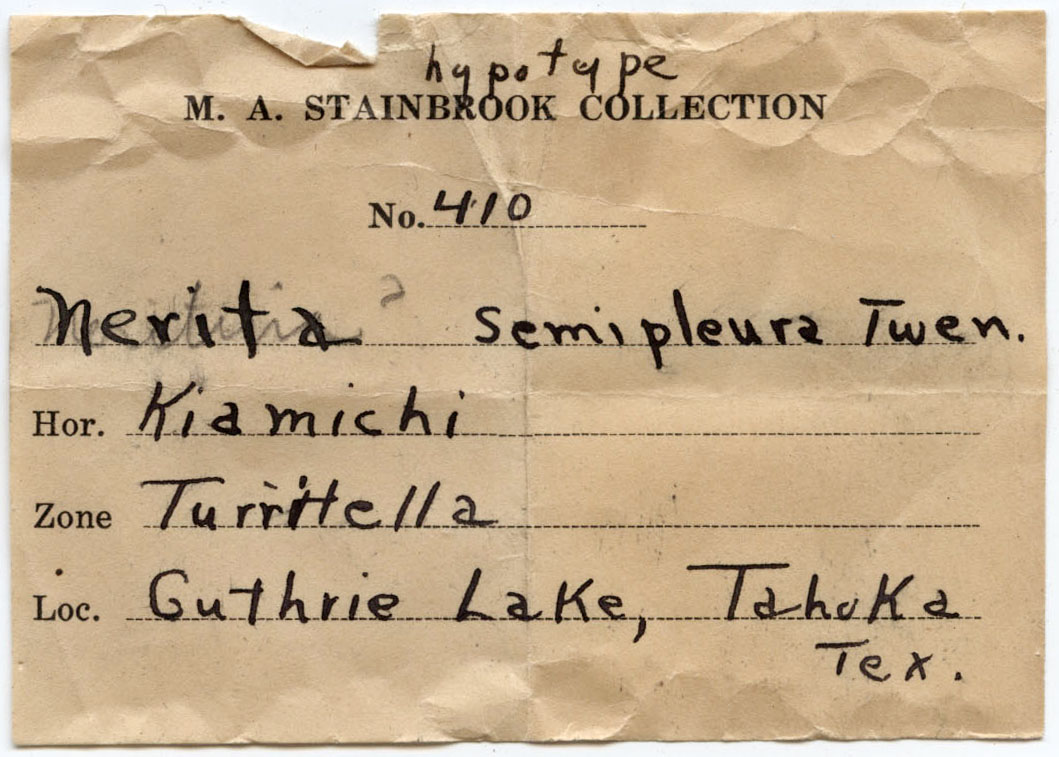 hypotype
M. A. STAINBROOK COLLECTION
No. 410
Nerita ? Semipleura Twen.
Hor. Kiamichi
Zone Turritella
Loc. Guthrie Lake, Tahoka
Tex.